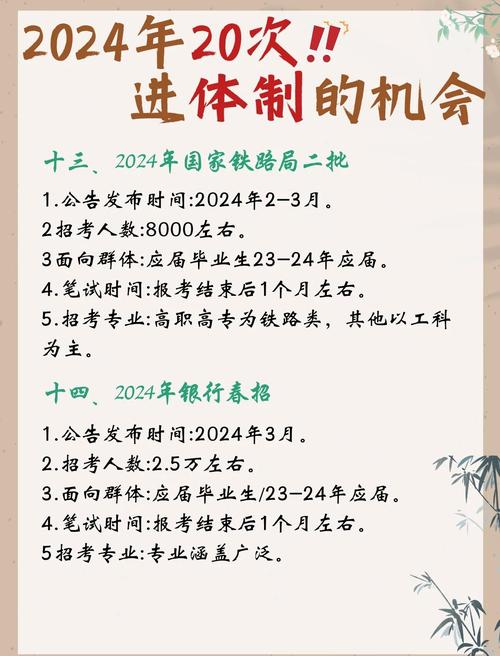 2024年20次!!
进体制的机会
十三、2024年国家铁路局二批
1.公告发布时间:2024年2-3月。
2招考人数:8000左右。
3面向群体:应届毕业生23-24年应届。
4.笔试时间:报考结束后1个月左右。
5.招考专业:高职高专为铁路类，其他以工科
为主。
十四、2024年银行春招
1.公告发布时间:2024年3月。
2.招考人数:2.5万左右。
3.面向群体:应届毕业生/23-24年应届。
4.笔试时间:报考结束后1个月左右。
5招考专业:专业涵盖广泛。